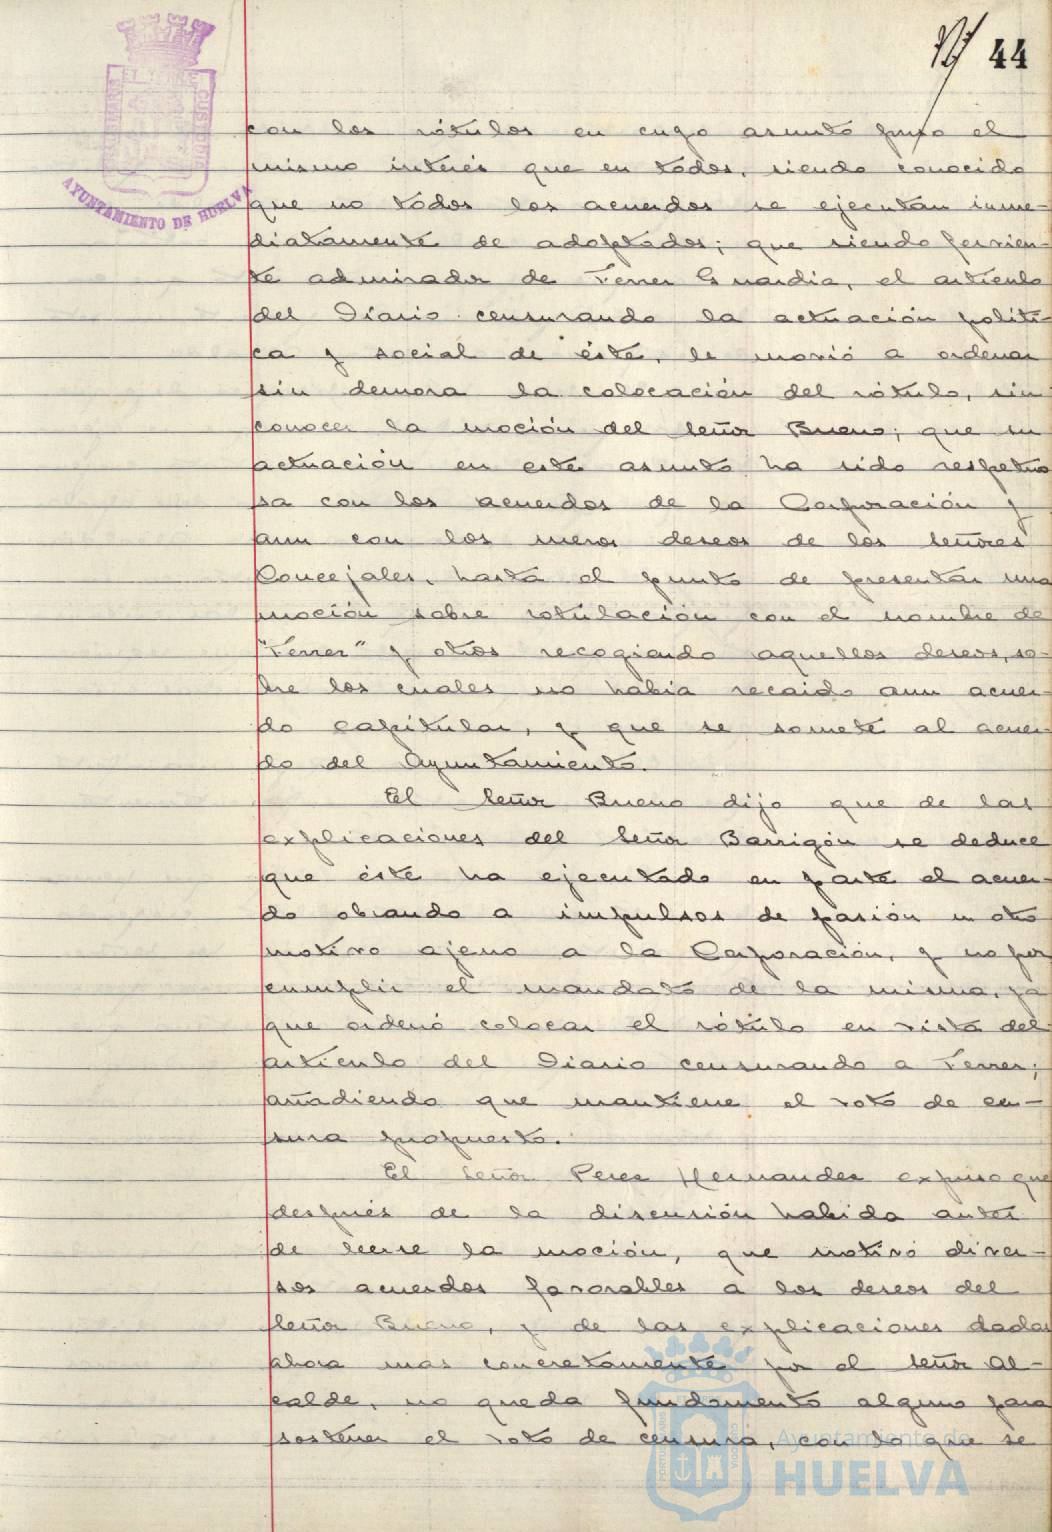 44
con los rótulos en cuyo asunto puso el
mismo interés que en todos, siendo conocido
que no todos los acuerdos se ejecutan inme-
diatamente de adoptados; que siendo fervien-
te admirador de Ferrer Guardia, el artículo
del Diario censurando la actuación políti-
ca y social de éste, le movió a ordenar
sin demora la colocación del rótulo, sin
conocer la moción del señor Bueno; que su
actuación en este asunto ha sido respetuo
sa con los acuerdos de la Corporación y
aun con los meros deseos de los señores
Concejales, hasta el punto de presentar una
moción sobre rotulación con el nombre de
"Ferrer" y otros recogiendo aquellos deseos, so-
bre los cuales no había recaido aun acuer-
do capitular, y que se somete al acuer-
do del Ayuntamiento.
El señor Bueno dijo que de las
explicaciones del señor Barrigón se deduce
que éste ha ejecutado en parte el acuer-
do obrando a impulsos de pasión u otro
motivo ajeno a la Corporación, y no por
cumplir el mandato de la misma, ya
que ordenó colocar el rótulo en vista del
artículo del Diario censurando a Ferrer;
añadiendo que mantiene el voto de cen-
sura propuesto.
El señor Perez Hernandez expuso que
después de la discusión habida antes
de leerse la moción, que motivó diver-
sos acuerdos favorables a los deseos del
señor Bueno, y de las explicaciones dadas
ahora mas concretamente por el señor Al-
calde, no queda fundamento alguno para
sostener el voto de censura, con lo que se
AYUNTAMIENTO DE HUELVA
Ayuntamiento de
HUELVA